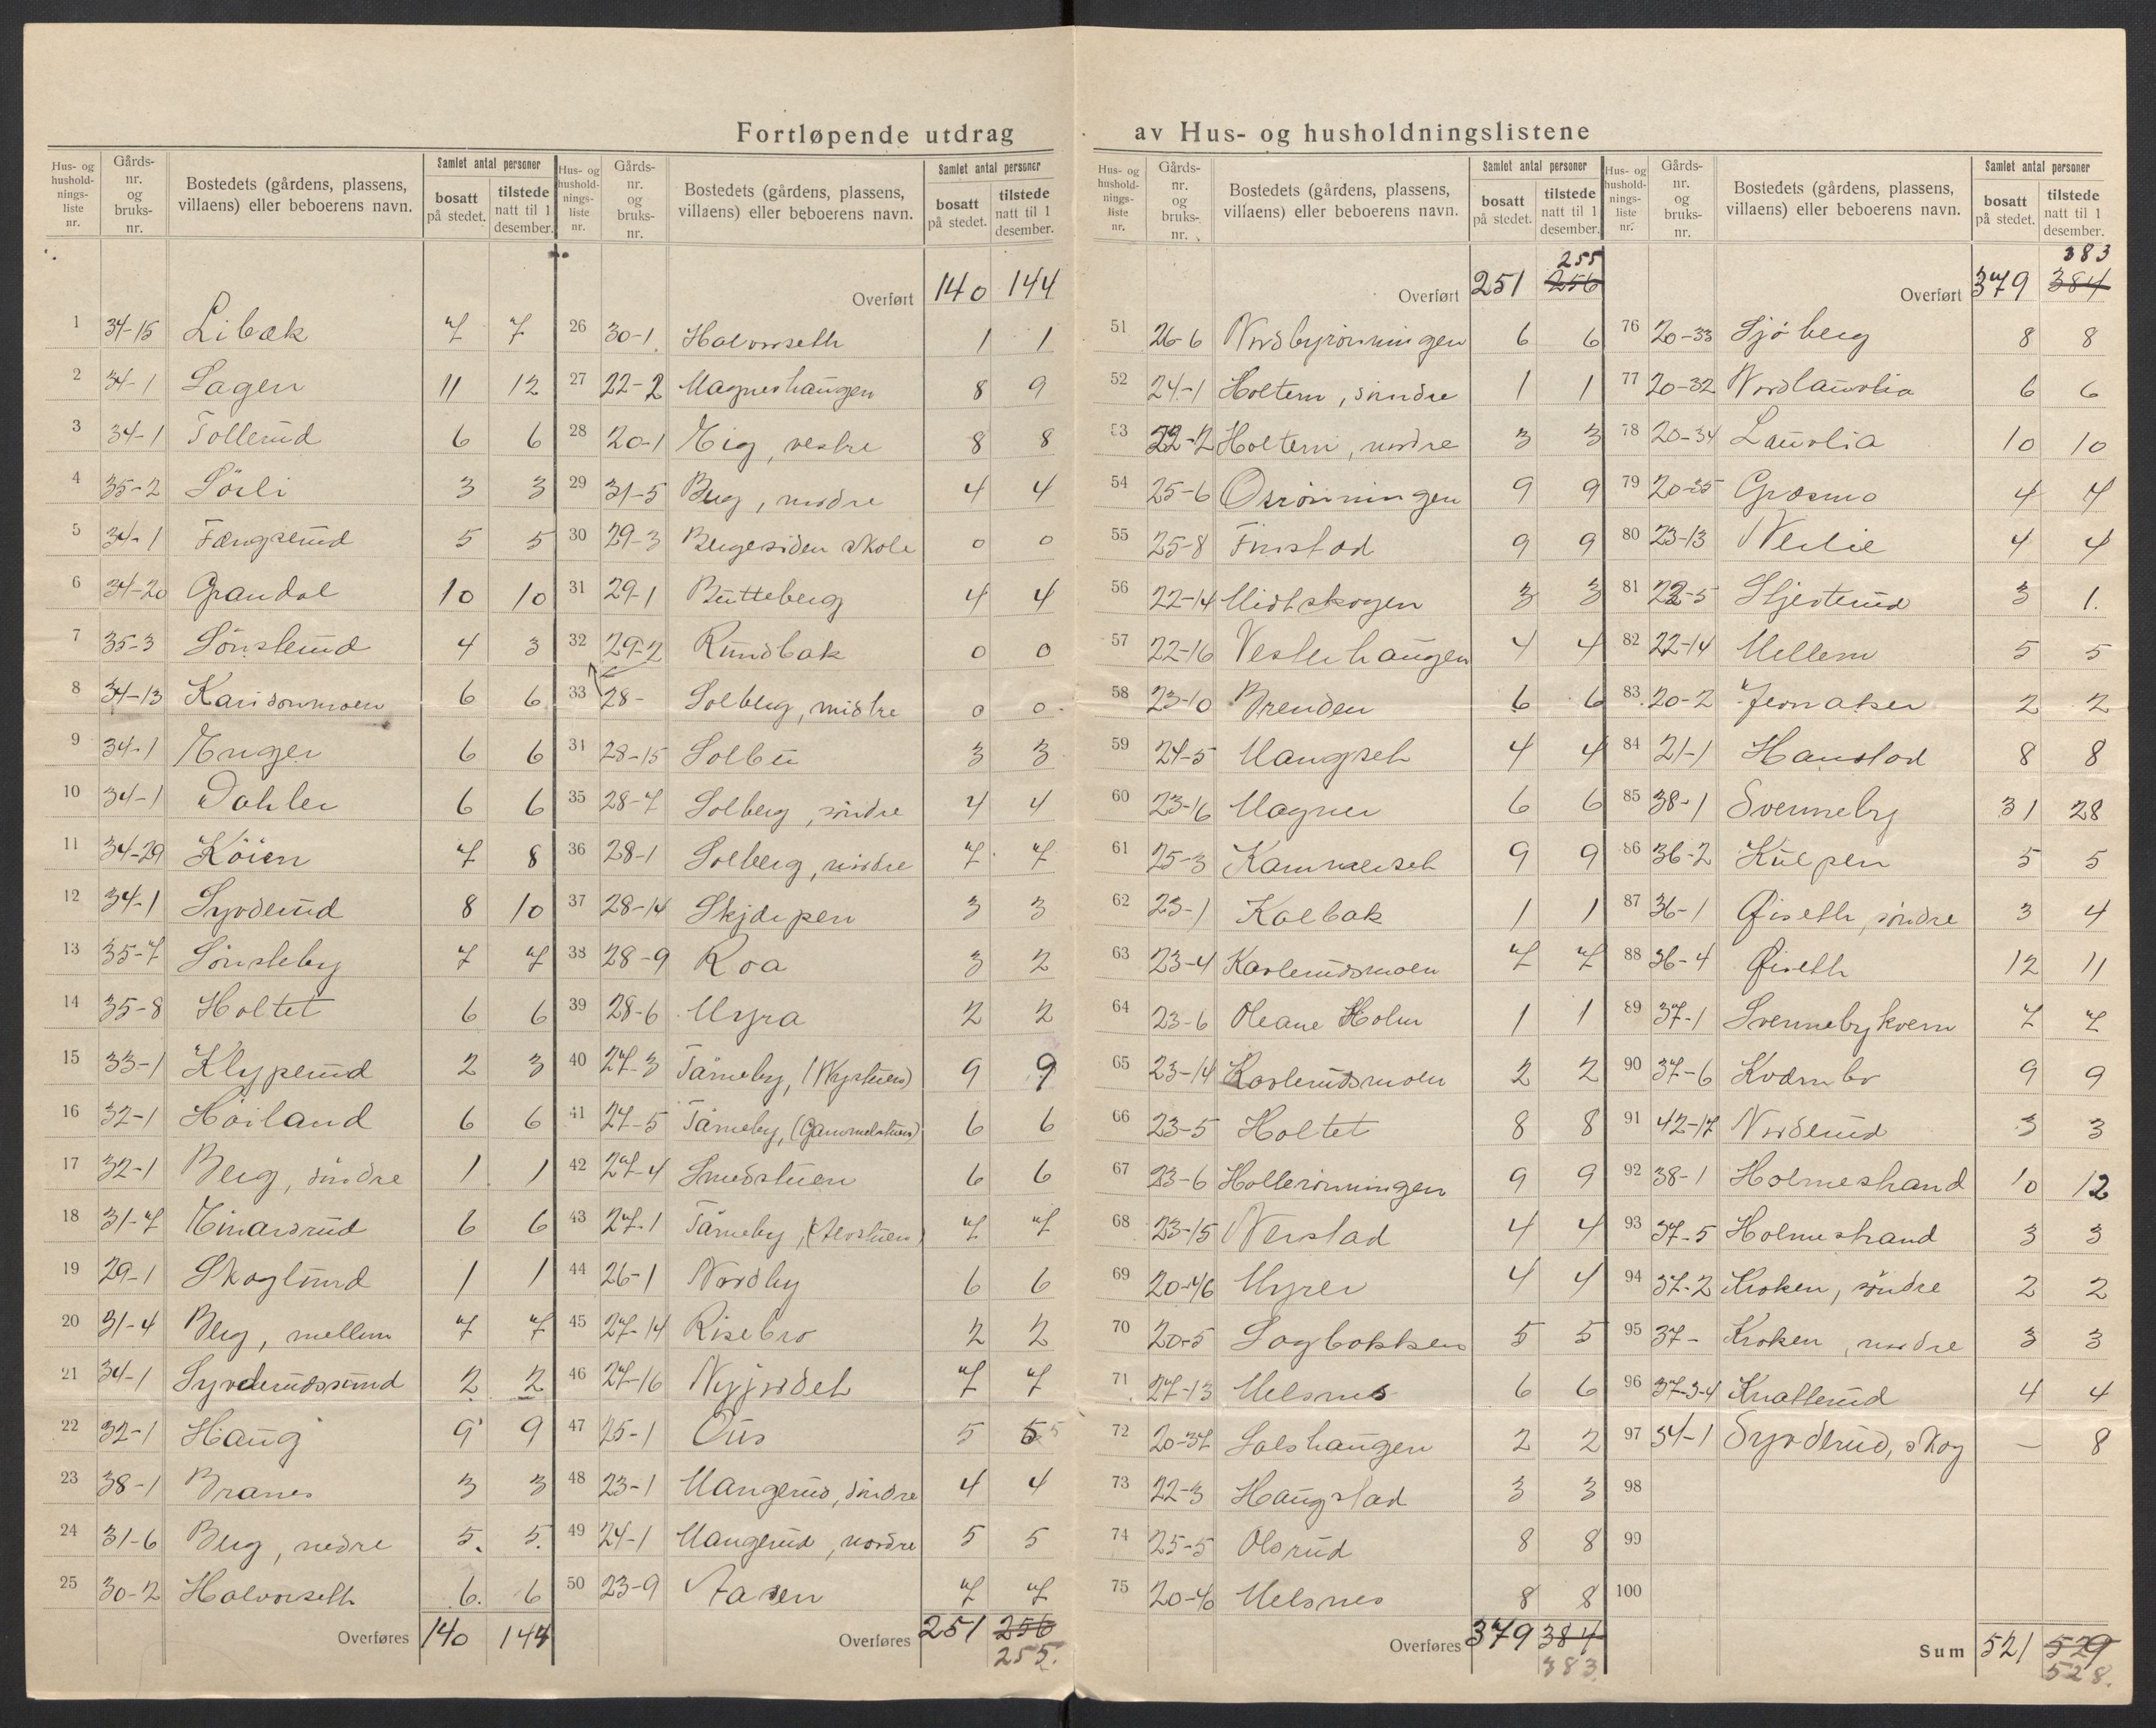 Fortløpende utdrag av Hus- og husholdningslistene
Hus- og hushold-nings-liste nr. Gårds-nr. og bruks-nr. Bostedets (gårdens, plassens, villaens) eller beboerens navn. Samlet antal personer bosatt på stedet. tilstede natt til 1 desember.
1 34-15 Libæk 7 7
2 34-1 Sagen 11 12
3 34-1 Tollerud 6 6
4 35-2 Sörli 3 3
5 34-1 Fængserud 5 5
6 34-20 Grandal 10 10
7 35-3 Sönsterud 4 3
8 34-13 Karidonmoen 6 6
9 34-1 Enger 6 6
10 34-1 Dahler 6 6
11 34-29 Köien 7 8
12 34-1 Syvderud 8 10
13 35-7 Sönsteby 7 7
14 35-8 Holtet 6 6
15 33-1 Klyperud 2 3
16 32-1 Höiland 6 6
17 32-1 Berg, söndre 1 1
18 31-7 Einarsrud 6 6
19 29-1 Skoglund 1 1
20 31-4 Berg, mellem 7 7
21 34-1 Syvderudssund 2 2
22 32-1 Haug 9 9
23 38-1 Pranes 3 3
24 31-6 Berg, nedre 5. 5.
25 30-2 Halvorseth 6. 6
Overføres 140 144
Hus- og hushold-nings-liste nr. Gårds-nr. og bruks-nr. Bostedets (gårdens, plassens, villaens) eller beboerens navn. Samlet antal personer bosatt på stedet. tilstede natt til 1 desember.
Overført 140 144
26 30-1 Halvorseth 1 1
27 22-2 Magneshaugen 8 9
28 20-1 Eig, vestre 8 8
29 31-5 Berg, nordre 4 4
30 29-3 Bergesiden skole 0 0
31 29-1 Butteberg 4 4
32 29-2 Rundbak 0 0
33 28- Solberg, midtre 0 0
34 28-15 Solbu 3 3
35 28-7 Solberg, söndre 4 4
36 28-1 Solberg, nordre 7 7
37 28-14 Skjærpen 3 3
38 28-9 Roa 3 2
39 28-6 Myra 2 2
40 27-3 Tårneby, (Nystuen) 9 9
41 27-5 Tårneby, (Gammelstuen) 6 6
42 27-4 Smedstuen 6 6
43 27-1 Tårneby, 7 7
44 26-1 Nordby 6 6
45 27-14 Risebro 2 2
46 27-16 Nyjordet 7 7
47 25-1 Ous 5 5 5
48 23-1 Mangerud, söndre 4 4
49 24-1 Mangerud, nordre 5 5
50 23-9 Aasen 7 7
Overføres 251 256
255.
Hus- og hushold-nings-liste nr. Gårds-nr. og bruks-nr. Bostedets (gårdens, plassens, villaens) eller beboerens navn. Samlet antal personer bosatt på stedet. tilstede natt til 1 desember.
255
Overført 251 256
51 26-6 Nordbyrönningen 6 6
52 24-1 Holtem, söndre 1 1
53 22-2 Holtem, nordre 3 3
54 25-6 Osrönningen 9 9
55 25-8 Finstad 9 9
56 22-14 Midtskogen 3 3
57 22-16 Vesterhaugen 4 4
58 23-10 Brenden 6 6
59 24-5 Mangset 4 4
60 23-16 Magner 6 6
61 25-3 Kammerset 9 9
62 23-1 Kalbak 1 1
63 23-4 Karlerudsmoen 7 7
64 23-6 Oleane Holm 1 1
65 23-14 Karlerudsmoen 2 2
66 23-5 Holtet 8 8
67 23-6 Hollerönningen 9 9
68 23-15 Nerstad 4 4
69 20-46 Myrer 4 4
70 20-5 Sagbakken 5 5
71 27-13 Melsnes 6 6
72 20-37 Solshaugen 2 2
73 22-3 Haugstad 3 3
74 25-5 Olsrud 8 8
75 20-40 Melsnes 8 8
Overføres 379 384
383
Hus- og hushold-nings-liste nr. Gårds-nr. og bruks-nr. Bostedets (gårdens, plassens, villaens) eller beboerens navn. Samlet antal personer bosatt på stedet. tilstede natt til 1 desember.
383
Overført 379 384
76 20-33 Sjöberg 8 8
77 20-32 Nordlaurlia 6 6
78 20-34 Laurlia 10 10
79 20-35 Græsmo 4 4
80 23-13 Nerlie 4 4
81 22-5 Stjerterud 3 1.
82 22-14 Mellem 5 5
83 20-2 Jernaker 2 2
84 21-1 Haustad 8 8
85 38-1 Svenneby 31 28
86 36-2 Kulpen 5 5
87 36-1 Øiseth, söndre 3 4
88 36-4 Øiseth 12 11
89 37-1 Svennebykvern 7 7
90 37-6 Kværnbo 9 9
91 42-17 Norderud 3 3
92 38-1 Holmestrand 10 12
93 37-5 Holmestrand 3 3
94 37-2 Kroken, söndre 2 2
95 37- Kroken, nordre 3 3
96 37-3-4 Knatterud 4 4
97 34-1 Syvderud, skog — 8
98
99
100
Sum 521 529
528.